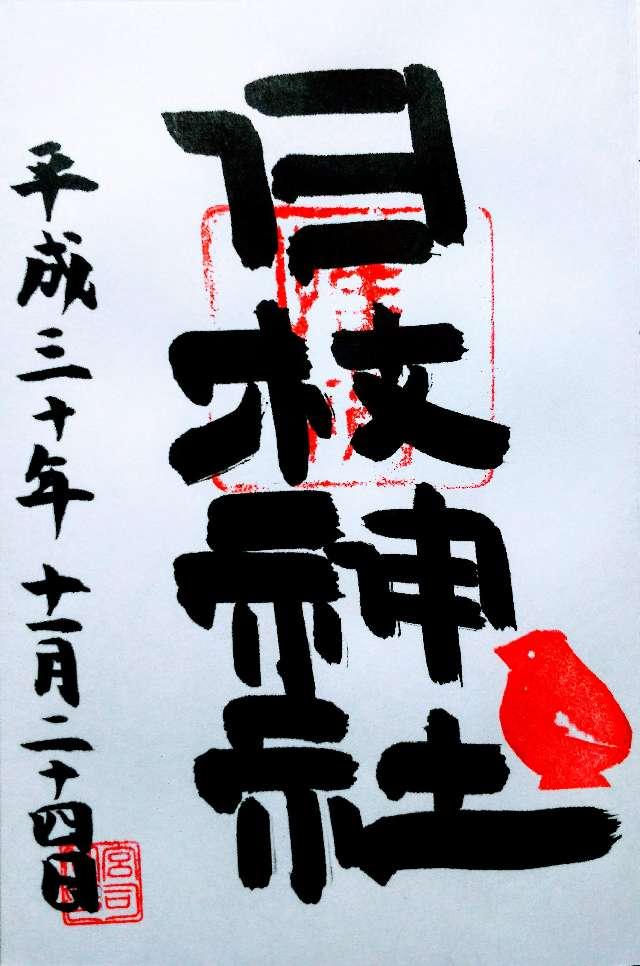 日枝神社
平成三十年十一月二十四日
宮司